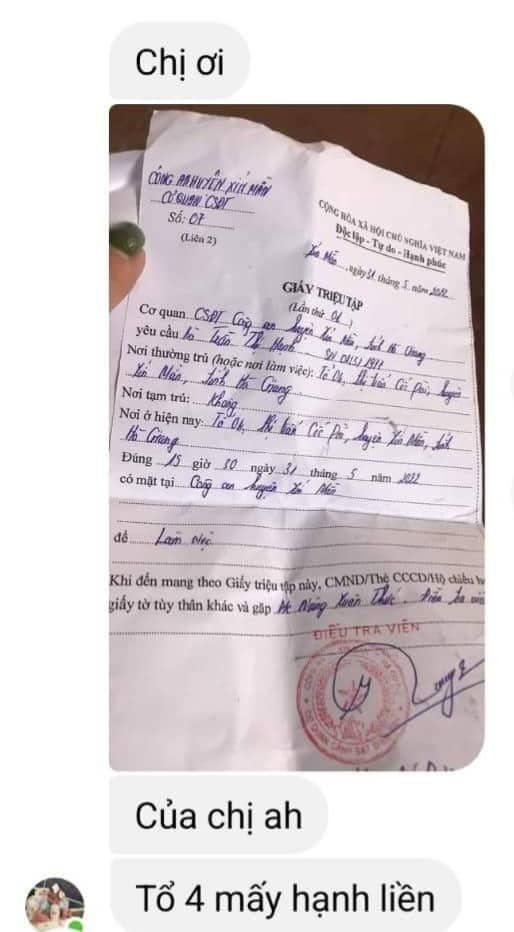 Chị ơi
CÔNG AN HUYỆN XÍN MẦN
CƠ QUAN CSĐT
Số: 07
(Liên 2)
CỘNG HÒA XÃ HỘI CHỦ NGHĨA VIỆT NAM
Độc lập - Tự do - Hạnh phúc
Xín Mần, ngày 31 tháng 5 năm 2022
GIẤY TRIỆU TẬP
(Lần thứ 01)
Cơ quan CSĐT Công an huyện Xín Mần, tỉnh Hà Giang
yêu cầu bà Trần Thị Hạnh
Nơi thường trú (hoặc nơi làm việc): thị trấn Cốc Pài, huyện
Xín Mần, tỉnh Hà Giang
Nơi tạm trú: Không
Nơi ở hiện nay: thị trấn Cốc Pài, huyện Xín Mần, tỉnh
Hà Giang
Đúng 15 giờ 30 ngày 31 tháng 5 năm 2022
có mặt tại Công an huyện Xín Mần
để Làm việc
Khi đến mang theo Giấy triệu tập này, CMND/Thẻ CCCD/Hộ chiếu
giấy tờ tùy thân khác và gặp Xuân
ĐIỀU TRA VIÊN
Của chị ah
Tổ 4 mấy hạnh liền